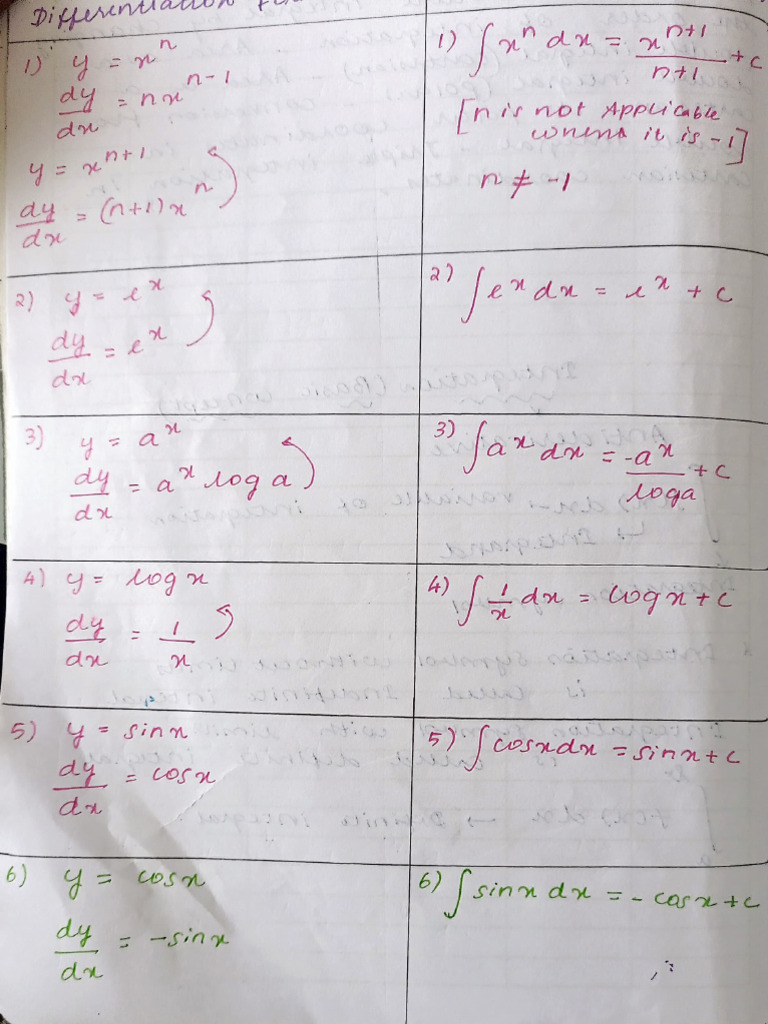 Differentiation
1) y = xⁿ
dy/dx = nxⁿ⁻¹
y = xⁿ⁺¹
dy/dx = (n+1)xⁿ
1) ∫xⁿ dx = xⁿ⁺¹/n+1 + c
[n is not applicable
where it is -1]
n ≠ -1
2) y = eˣ
dy/dx = eˣ
2) ∫eˣ dx = eˣ + c
3) y = aˣ
dy/dx = aˣ log a
3) ∫aˣ dx = -aˣ/loga + c
4) y = log x
dy/dx = 1/x
4) ∫1/x dx = logx + c
5) y = sinx
dy/dx = cosx
5) ∫cosxdx = sinx + c
6) y = cosx
dy/dx = -sinx
6) ∫sinx dx = - cosx + c